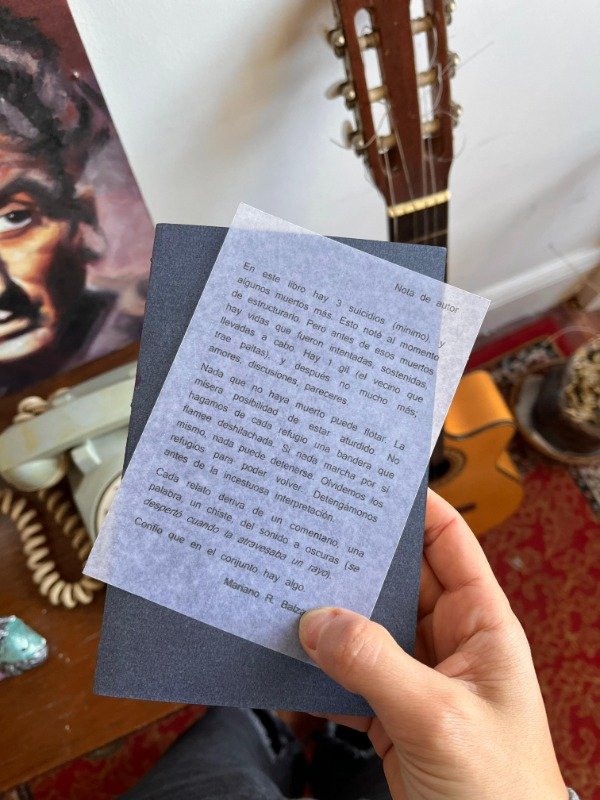 Nota de autor
En este libro hay 3 suicidios (mínimo), y
algunos muertos más. Esto noté al momento
de estructurarlo. Pero antes de esos muertos
hay vidas que fueron intentadas, sostenidas,
llevadas a cabo. Hay 1 gil (el vecino que
trae paltas), y después, no mucho más;
amores, discusiones, pareceres.
Nada que no haya muerto puede flotar. La
mísera posibilidad de estar aturdido. No
hagamos de cada refugio una bandera que
flamee deshilachada. Si nada marcha por sí
mismo, nada puede detenerse. Olvidemos los
refugios para poder volver. Detengámonos
antes de la incestuosa interpretación.
Cada relato deriva de un comentario, una
palabra, un chiste, del sonido a oscuras (se
despertó cuando la atravesaba un rayo).
Confío que en el conjunto hay algo.
Mariano R. Balza